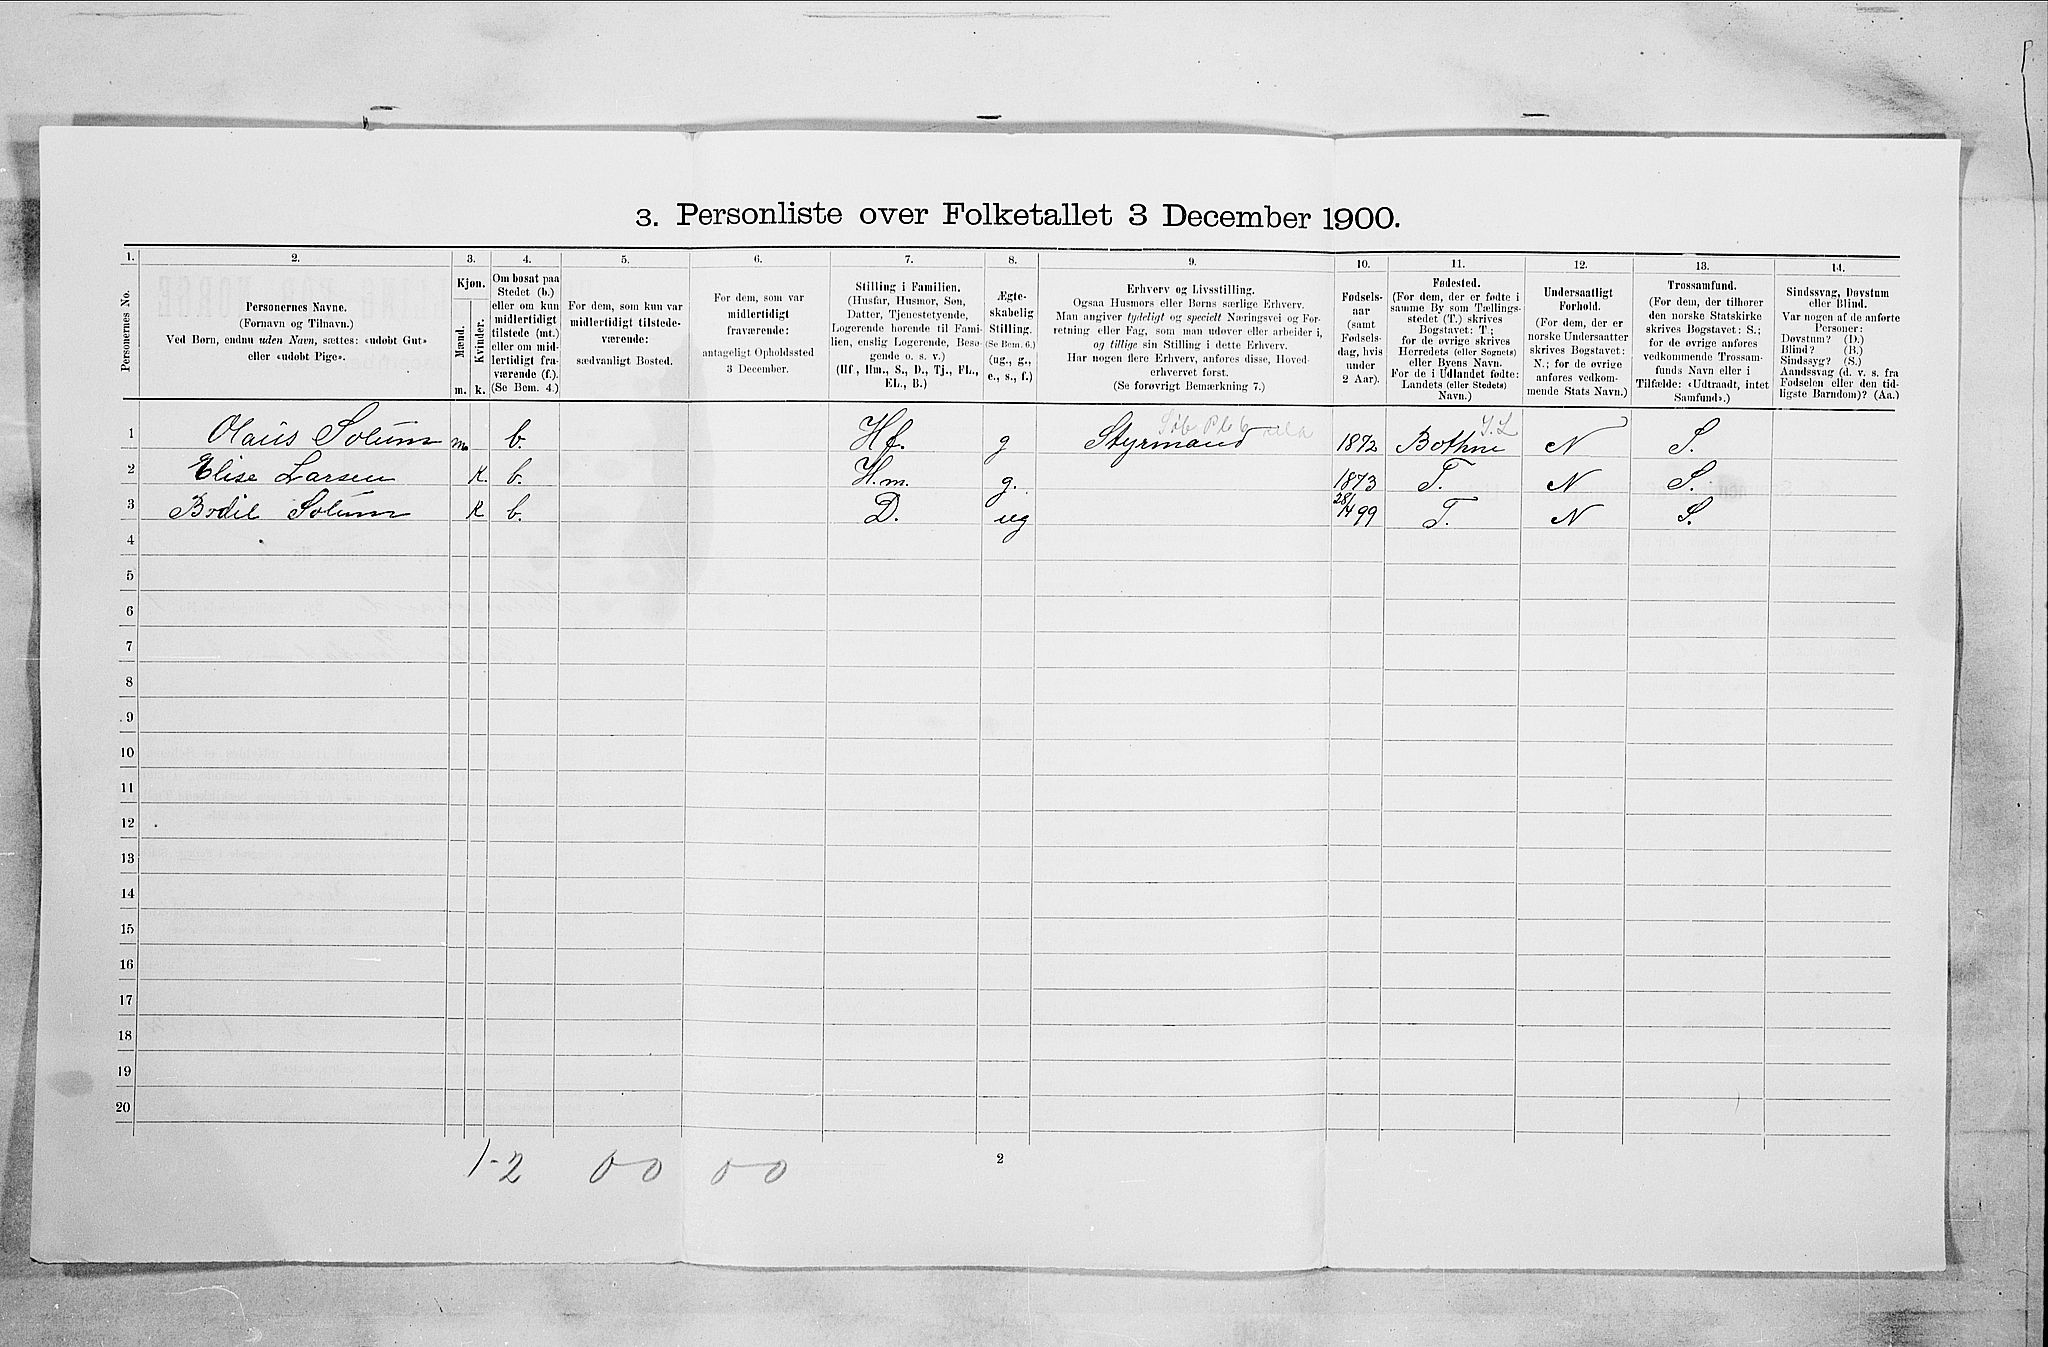 3. Personliste over Folketallet 3 December 1900.
1. 2. 3. 4. 5. 6. 7. 8. 9. 10. 11. 12. 13. 14.
Personernes No.
Personernes Navne.
(Fornavn og Tilnavn.)
Ved Børn, endnu uden Navn, sættes: «udøbt Gut»
eller «udøbt Pige».
Kjøn.
Mænd.
Kvinder.
m. k.
Om bosat paa
Stedet (b.)
eller om kun
midlertidigt
tilstede (mt.)
eller om mid-
lertidigt fra-
værende (f.).
(Se Bem. 4.)
For dem, som kun var
midlertidigt tilstede-
værende:
sædvanligt Bosted.
For dem, som var
midlertidigt
fraværende:
antageligt Opholdssted
3 December.
Stilling i Familien.
(Husfar, Husmor, Søn,
Datter, Tjenestetyende,
Logerende hørende til Fami-
lien, enslig Logerende, Besø-
gende o. s. v.)
(Hf., Hm., S., D., Tj., FL.,
EL., B.)
Ægte-
skabelig
Stilling.
(Se Bem. 6.)
(ug., g.,
e., s., f.)
Erhverv og Livsstilling.
Ogsaa Husmors eller Børns særlige Erhverv.
Man angiver tydeligt og specielt Næringsvei og For-
retning eller Fag, som man udøver eller arbeider i,
og tillige sin Stilling i dette Erhverv.
Har nogen flere Erhverv, anføres disse, Hoved-
erhvervet først.
(Se forøvrigt Bemærkning 7.)
Fødsels-
aar
(samt
Fødsels-
dag, hvis
under
2 Aar).
Fødested.
(For dem, der er fødte i
samme By som Tællings-
stedet (T.) skrives
Bogstavet: T;
for de øvrige skrives
Herredets (eller Sognets)
eller Byens Navn.
For de i Udlandet fødte:
Landets (eller Stedets)
Navn.)
Undersaatligt
Forhold.
(For dem, der er
norske Undersaatter
skrives Bogstavet:
N.; for de øvrige
anføres vedkom-
mende Stats Navn.)
Trossamfund.
(For dem, der tilhører
den norske Statskirke
skrives Bogstavet: S.;
for de øvrige anføres
vedkommende Trossam-
funds Navn eller i
Tilfælde: «Udtraadt, intet
Samfund».)
Sindssvag, Døvstum
eller Blind.
Var nogen af de anførte
Personer:
Døvstum? (D.)
Blind? (B.)
Sindssyg? (S.)
Aandssvag (d. v. s. fra
Fødselen eller den tid-
ligste Barndom)? (Aa.)
1 Olaus Solum m. b. Hf. g Styrmand 1872 Bothne J.L N S.
2 Elise Larsen K. b. H.m. g. 1873 T. N S.
3 Bodil Solum K b. D. ug 28/4 99 T. N S.
4
5
6
7
8
9
10
11
12
13
14
15
16
17
18
19
20
1-2 0 0 0 0 2